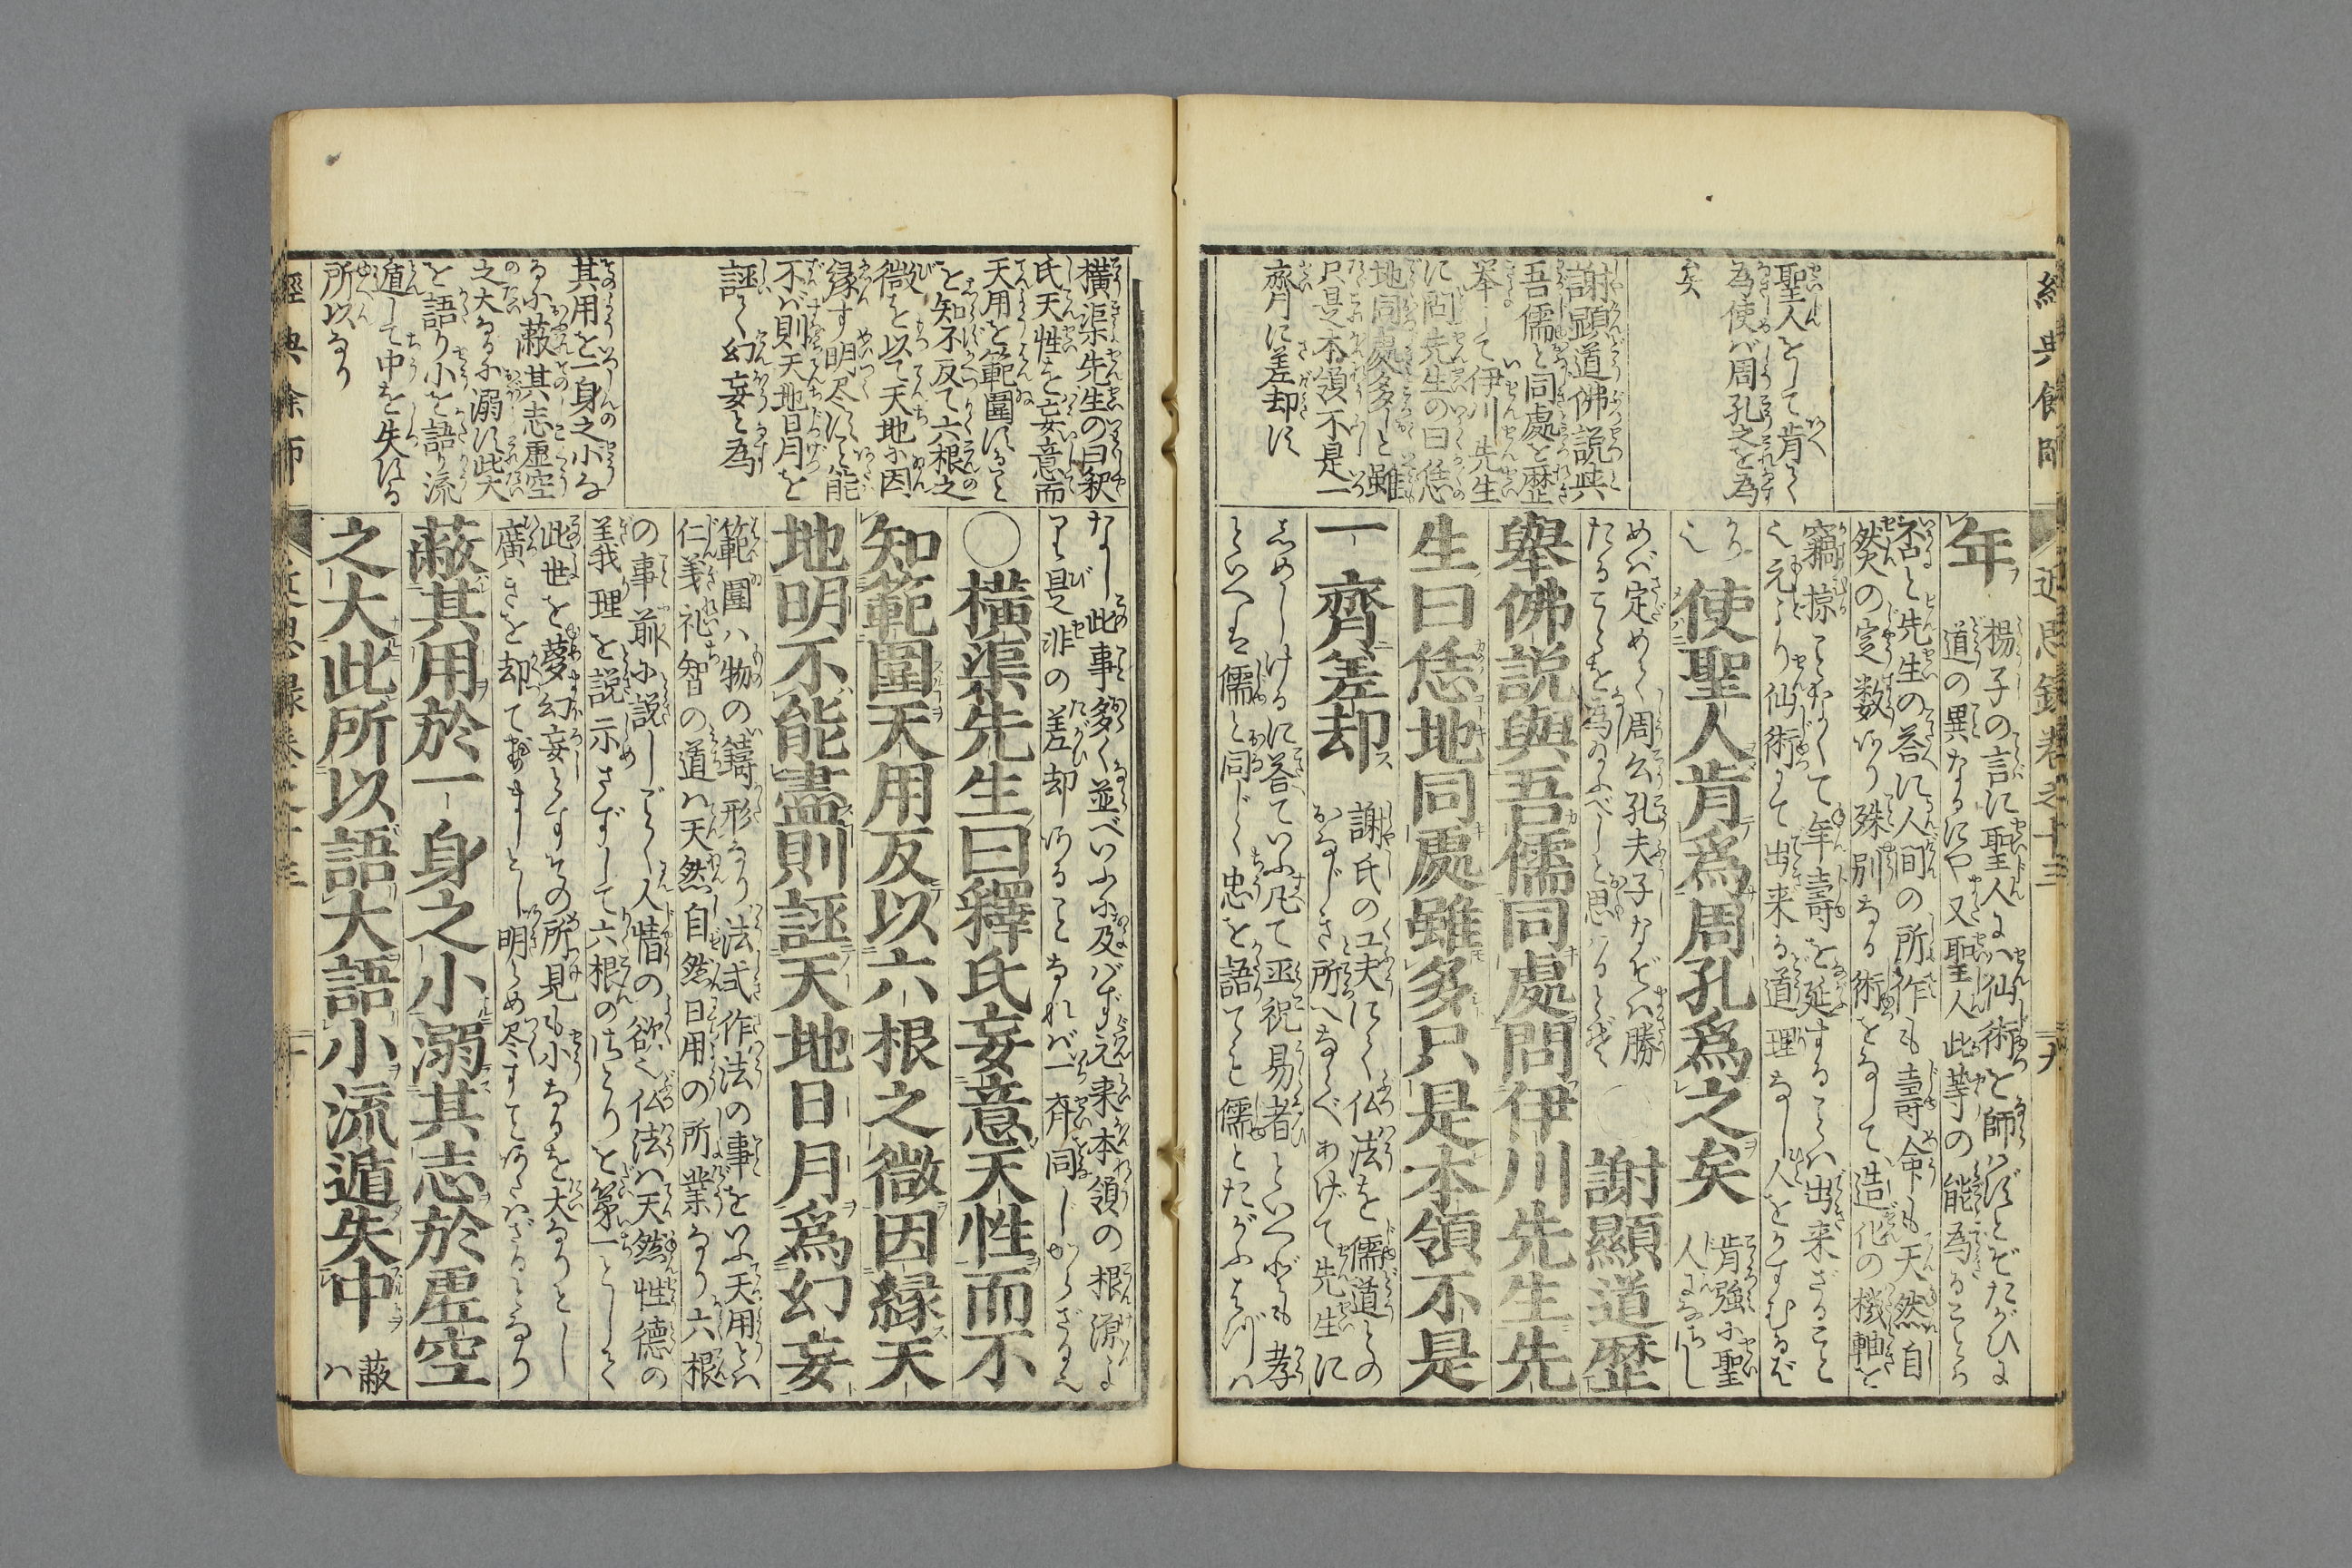 經典餘師
近思録巻之十三
九
聖人をして肯て
為使バ周孔之を為
矣
謝顕道佛説與
吾儒と同處を歴
挙して伊川先生
に問先生の曰恁
地同處多しと雖
只是本領不是一
齊に差却す
年
楊子の言に聖人は仙術を師
道の異なるにや又聖人此等の能為ること
否と先生の答に人間の所作も壽命も天然自
然の定数あり殊別なる術をなして造化の機軸を
竊掠ことなくて年壽を延することハ出来ざること
元より仙術とて出来る道理なし人をかすむるが
使聖人肯爲周孔爲之矣
肯強て聖
めバ定めて周公孔夫子なぞハ勝
たることを為のふべしと思
謝顯道歴
舉佛説與吾儒同處問伊川先生先
生曰恁地同處雖多只是本領不是
一齊差却
謝氏の工夫にて仏法を儒道との
おなじき所へなくあげて先生に
しめしけるに答ていふ凡て巫祝易者といへども孝
といへば儒と同じく忠を語てと儒とたがふ
横渠先生の曰釈
氏天性を妄意而
天用を範圍することを
を知不反て六根之
微を以て天地に因
縁す明尽すこと能
不バ則天地日月を
誣て幻妄と為
其用を一身之小な
るに蔽其志虚空
之大なるに溺す此大
を語り小を語り流
遁して中を失する
所以なり
なし此事多く並べいふに及バず元来本領の根源よ
り是非の差却あることなれバ一齊同じからざるなり
○横渠先生曰釋氏妄意天性而不
知範圍天用反以六根之微因縁天
地明不能盡則誣天地日月爲幻妄
範圍ハ物の鑄形なり法式作法の事をいふ天用とハ
仁義礼智の道ハ天然自然日用の所業なり六根
の事前に説しごとく人情の欲也仏法ハ天然性徳の
至我理を説示さずして六根のはたらきを第一として
此世を夢幻妄とすその所見も小なるを大なりとし
廣きを却てせましとし明らめ尽すことあたハざるとなり
蔽其用於一身之小溺其志於虚空
之大此所以語大語小流遁失中
蔽
ハ
經典餘師
近思録巻之十三
十